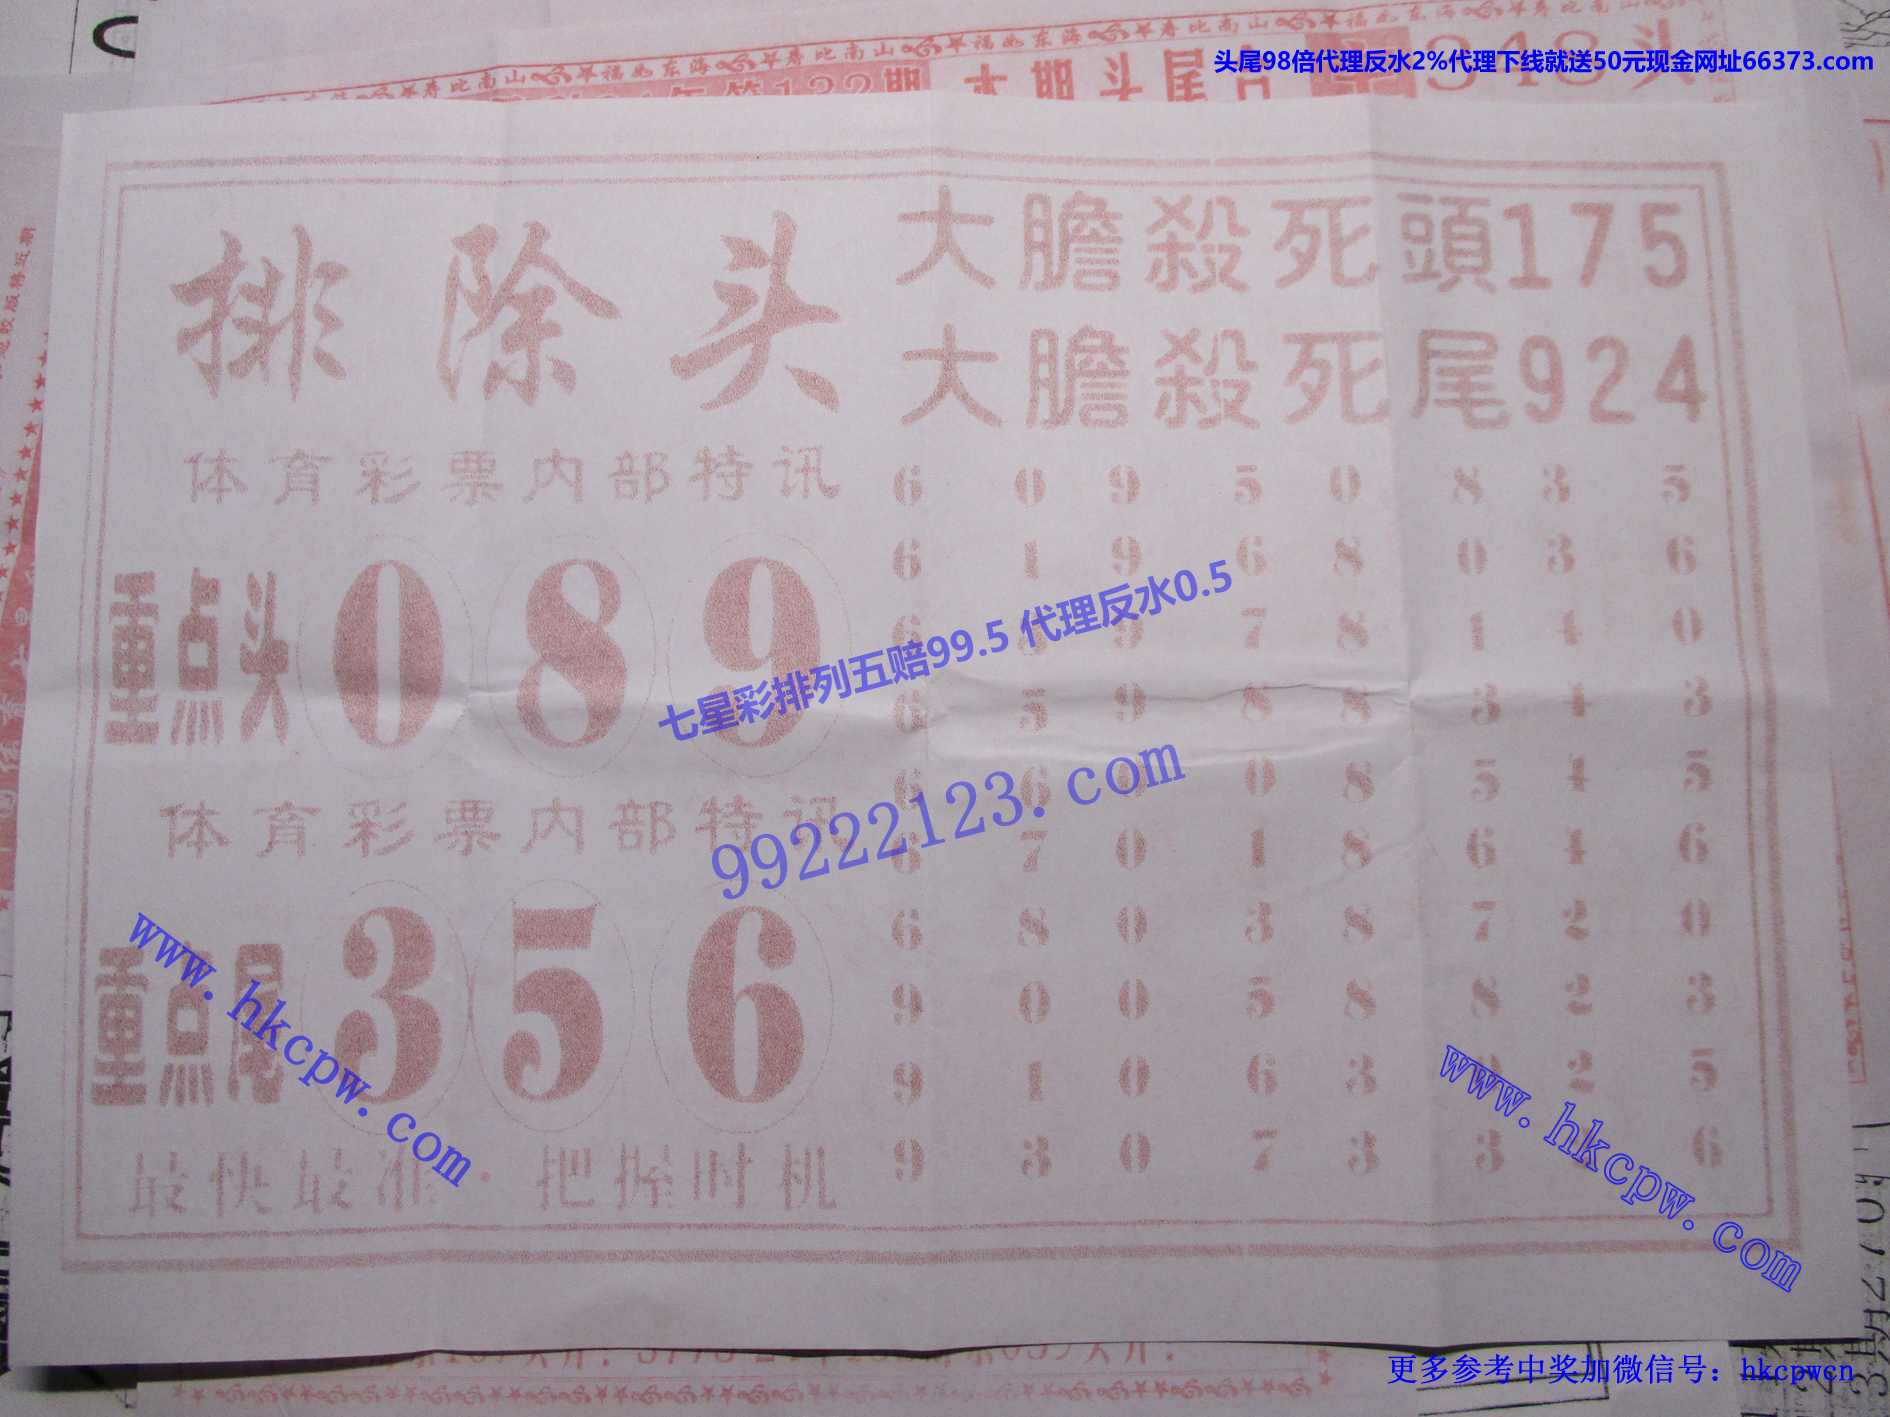 头尾98倍代理反水2%代理下线就送50元现金网址66373.com
排除头
大膽殺死頭175
大膽殺死尾924
体育彩票内部特讯
重点头 0 8 9
体育彩票内部特讯
重点尾 3 5 6
最快最准·把握时机
6 0 9 5 0 8 3 5
6 1 9 6 8 0 3 6
6 3 9 7 8 1 4 0
6 5 9 8 8 3 4 3
6 6 0 0 8 5 4 5
6 7 0 1 8 6 4 6
6 8 0 3 8 7 2 0
9 0 0 5 8 8 2 3
9 1 0 6 3 2 5
9 3 0 7 3 3 6
七星彩排列五赔99.5 代理反水0.5
99222123.com
www.hkcpw.com
www.hkcpw.com
更多参考中奖加微信号：hkcpwcn